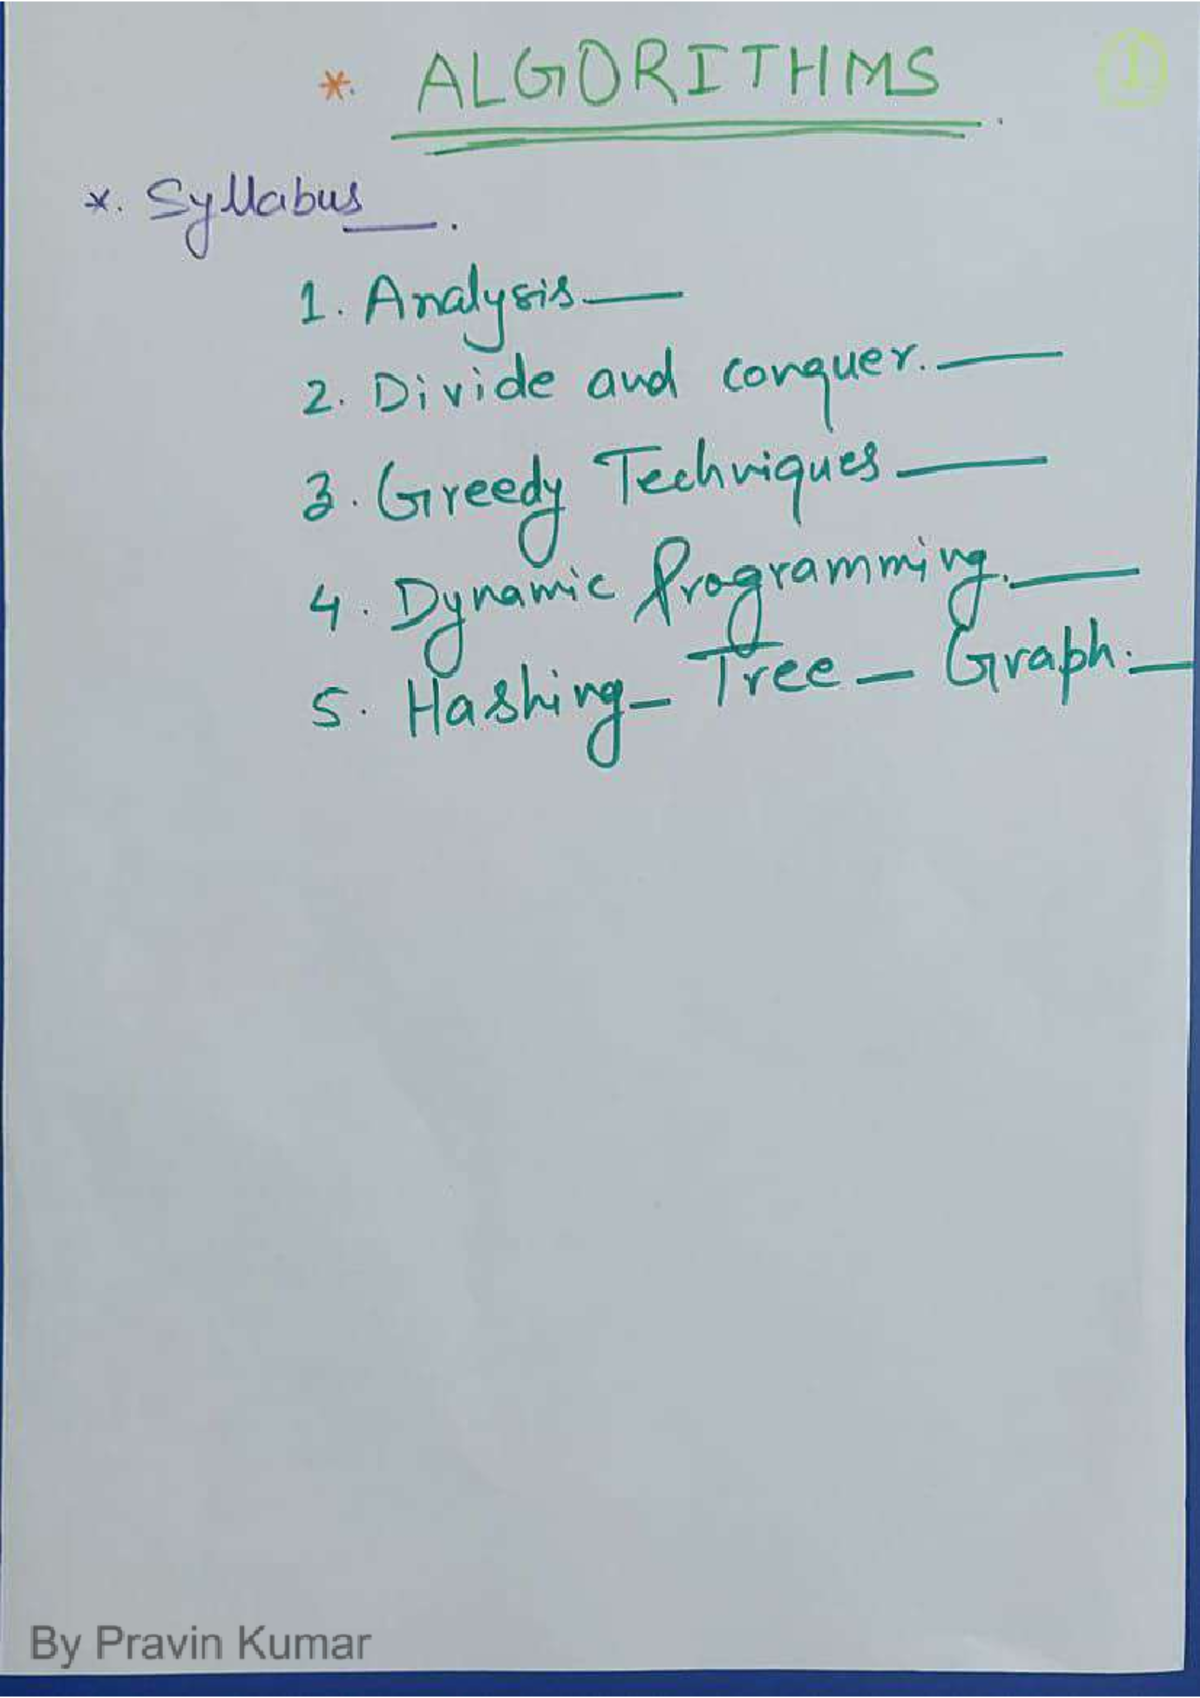 * ALGORITHMS 1
*. Syllabus .
1. Analysis
2. Divide and conquer.
3. Greedy Techniques
4. Dynamic Programming.
5. Hashing - Tree - Graph.
By Pravin Kumar